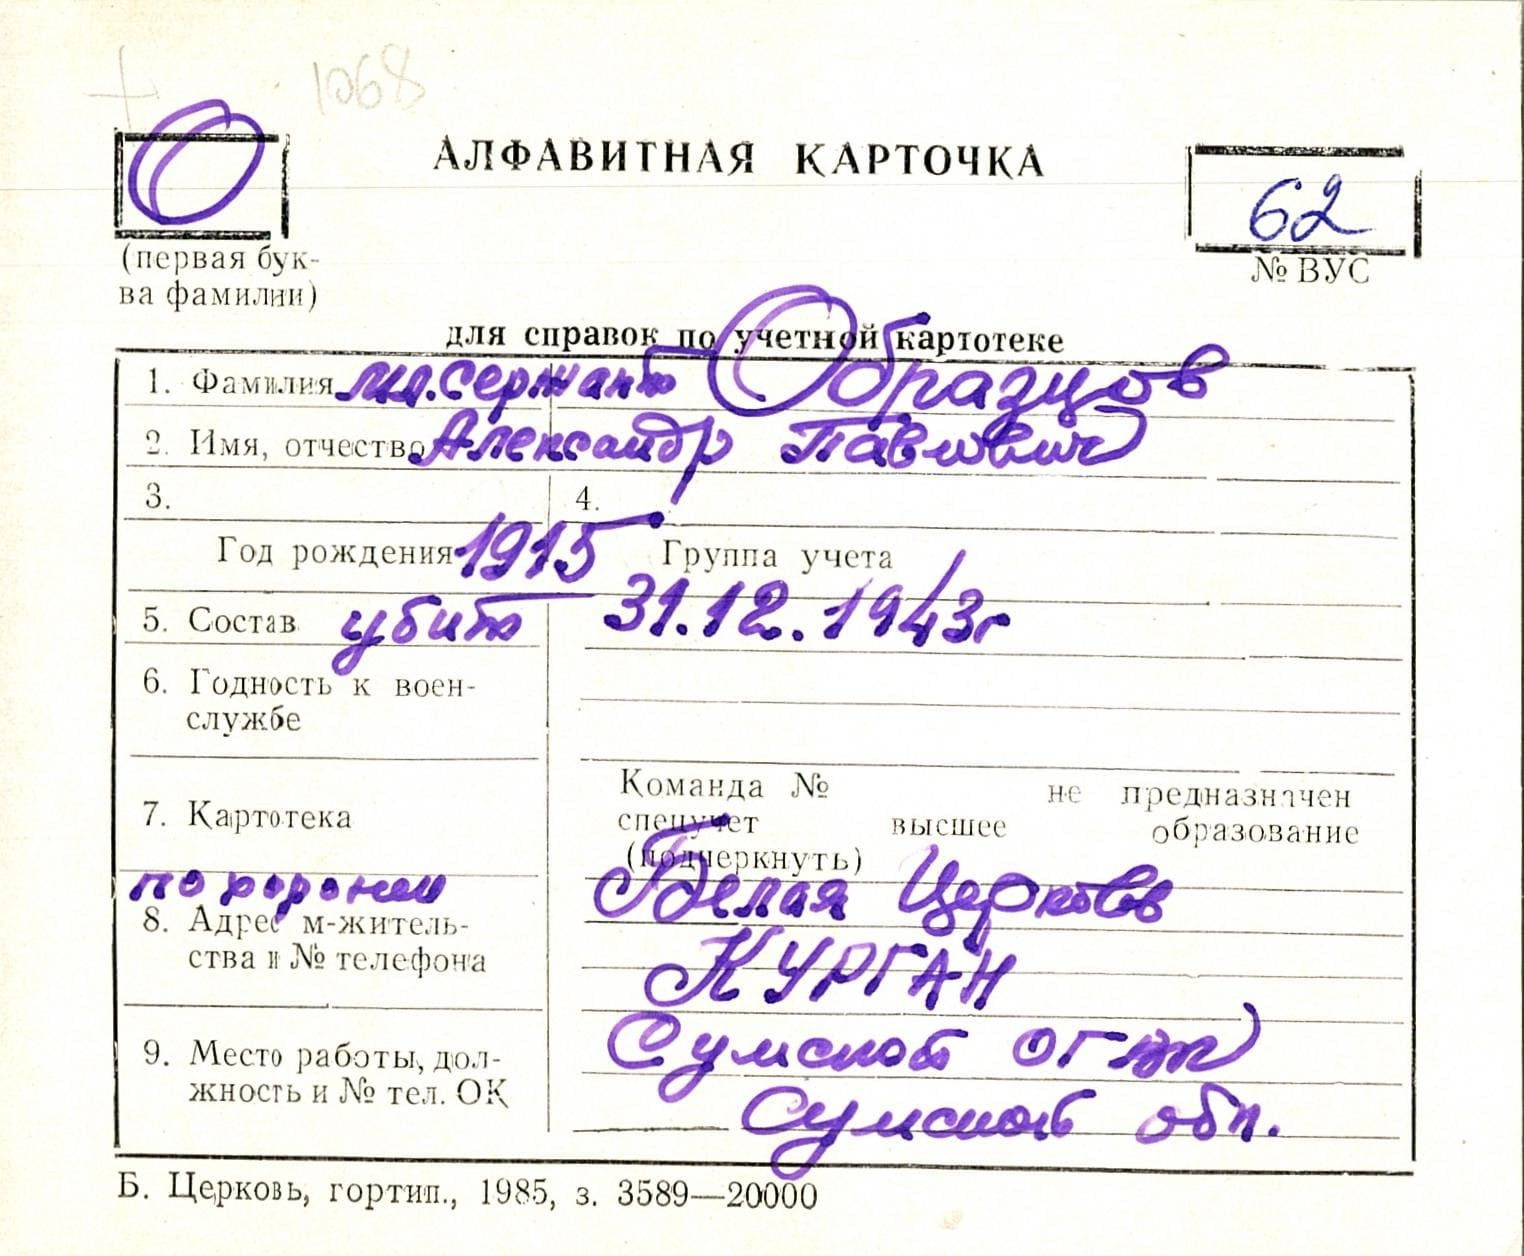 1068
О
АЛФАВИТНАЯ КАРТОЧКА
62
(первая бук-
ва фамилии)
№ ВУС
для справок по учетной картотеке
1. Фамилия мл.сержант Образцов
2. Имя, отчество Александр Павлович
3.
4.
Год рождения 1915 Группа учета
5. Состав убит 31.12.1943г
6. Годность к воен-
службе
7. Картотека
Команда № не предназначен
спецучет высшее образование
(подчеркнуть)
похоронен Белая Церковь
8. Адрес м-житель-
ства и № телефона
КУРГАН
9. Место работы, дол-
жность и № тел. ОК
Сумской ОГВК
Сумской обл.
Б. Церковь, гортип., 1985, з. 3589—20000